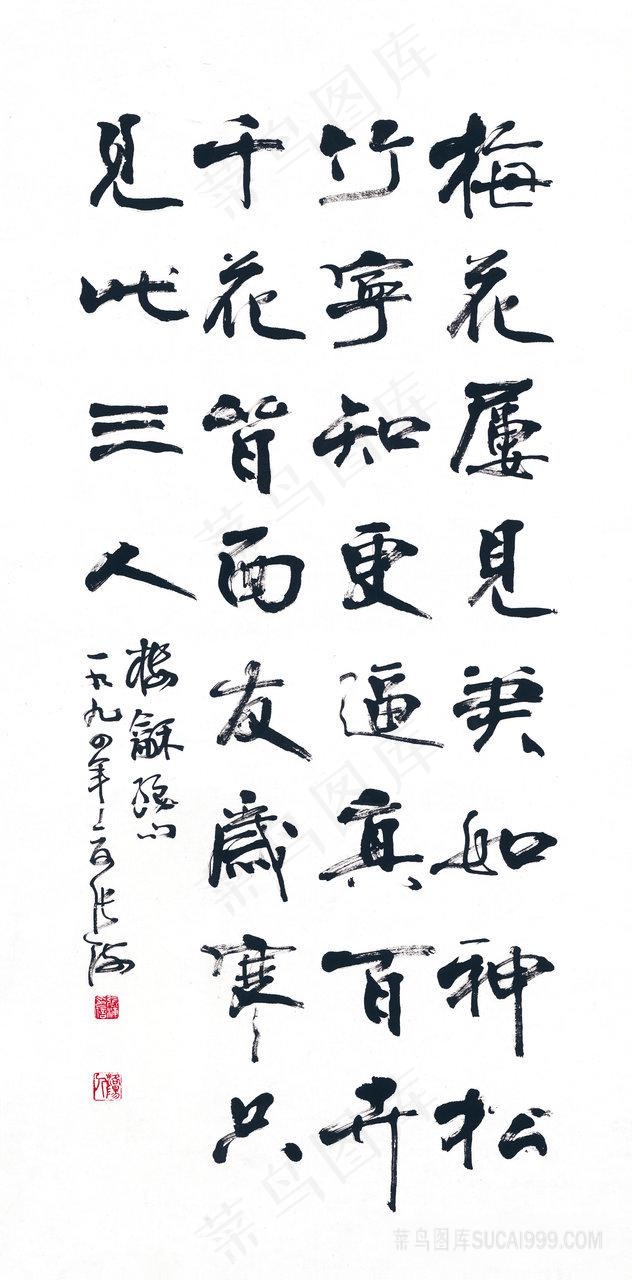 梅花屢見筆如神松
竹寧知更逼真百卉
千花皆面友歲寒只
見此三人
一九九四年
張海
菜鸟图库
菜鸟图库SUCAI999.COM